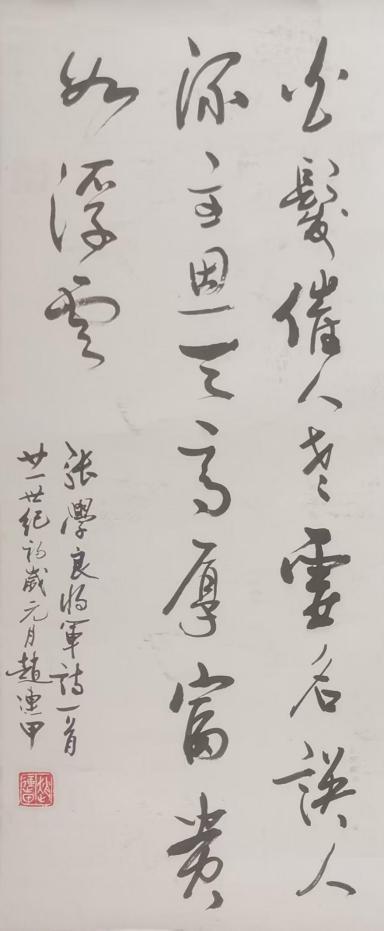 白髮催人老虛名誤人
深主恩天高厚富貴
如浮雲
張學良將軍詩一首
廿一世紀初歲元月趙連甲